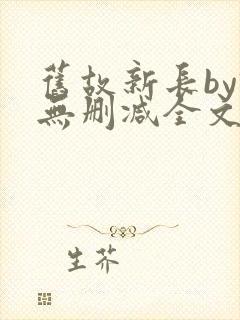 舊故新長by
無刪減全文
生芥